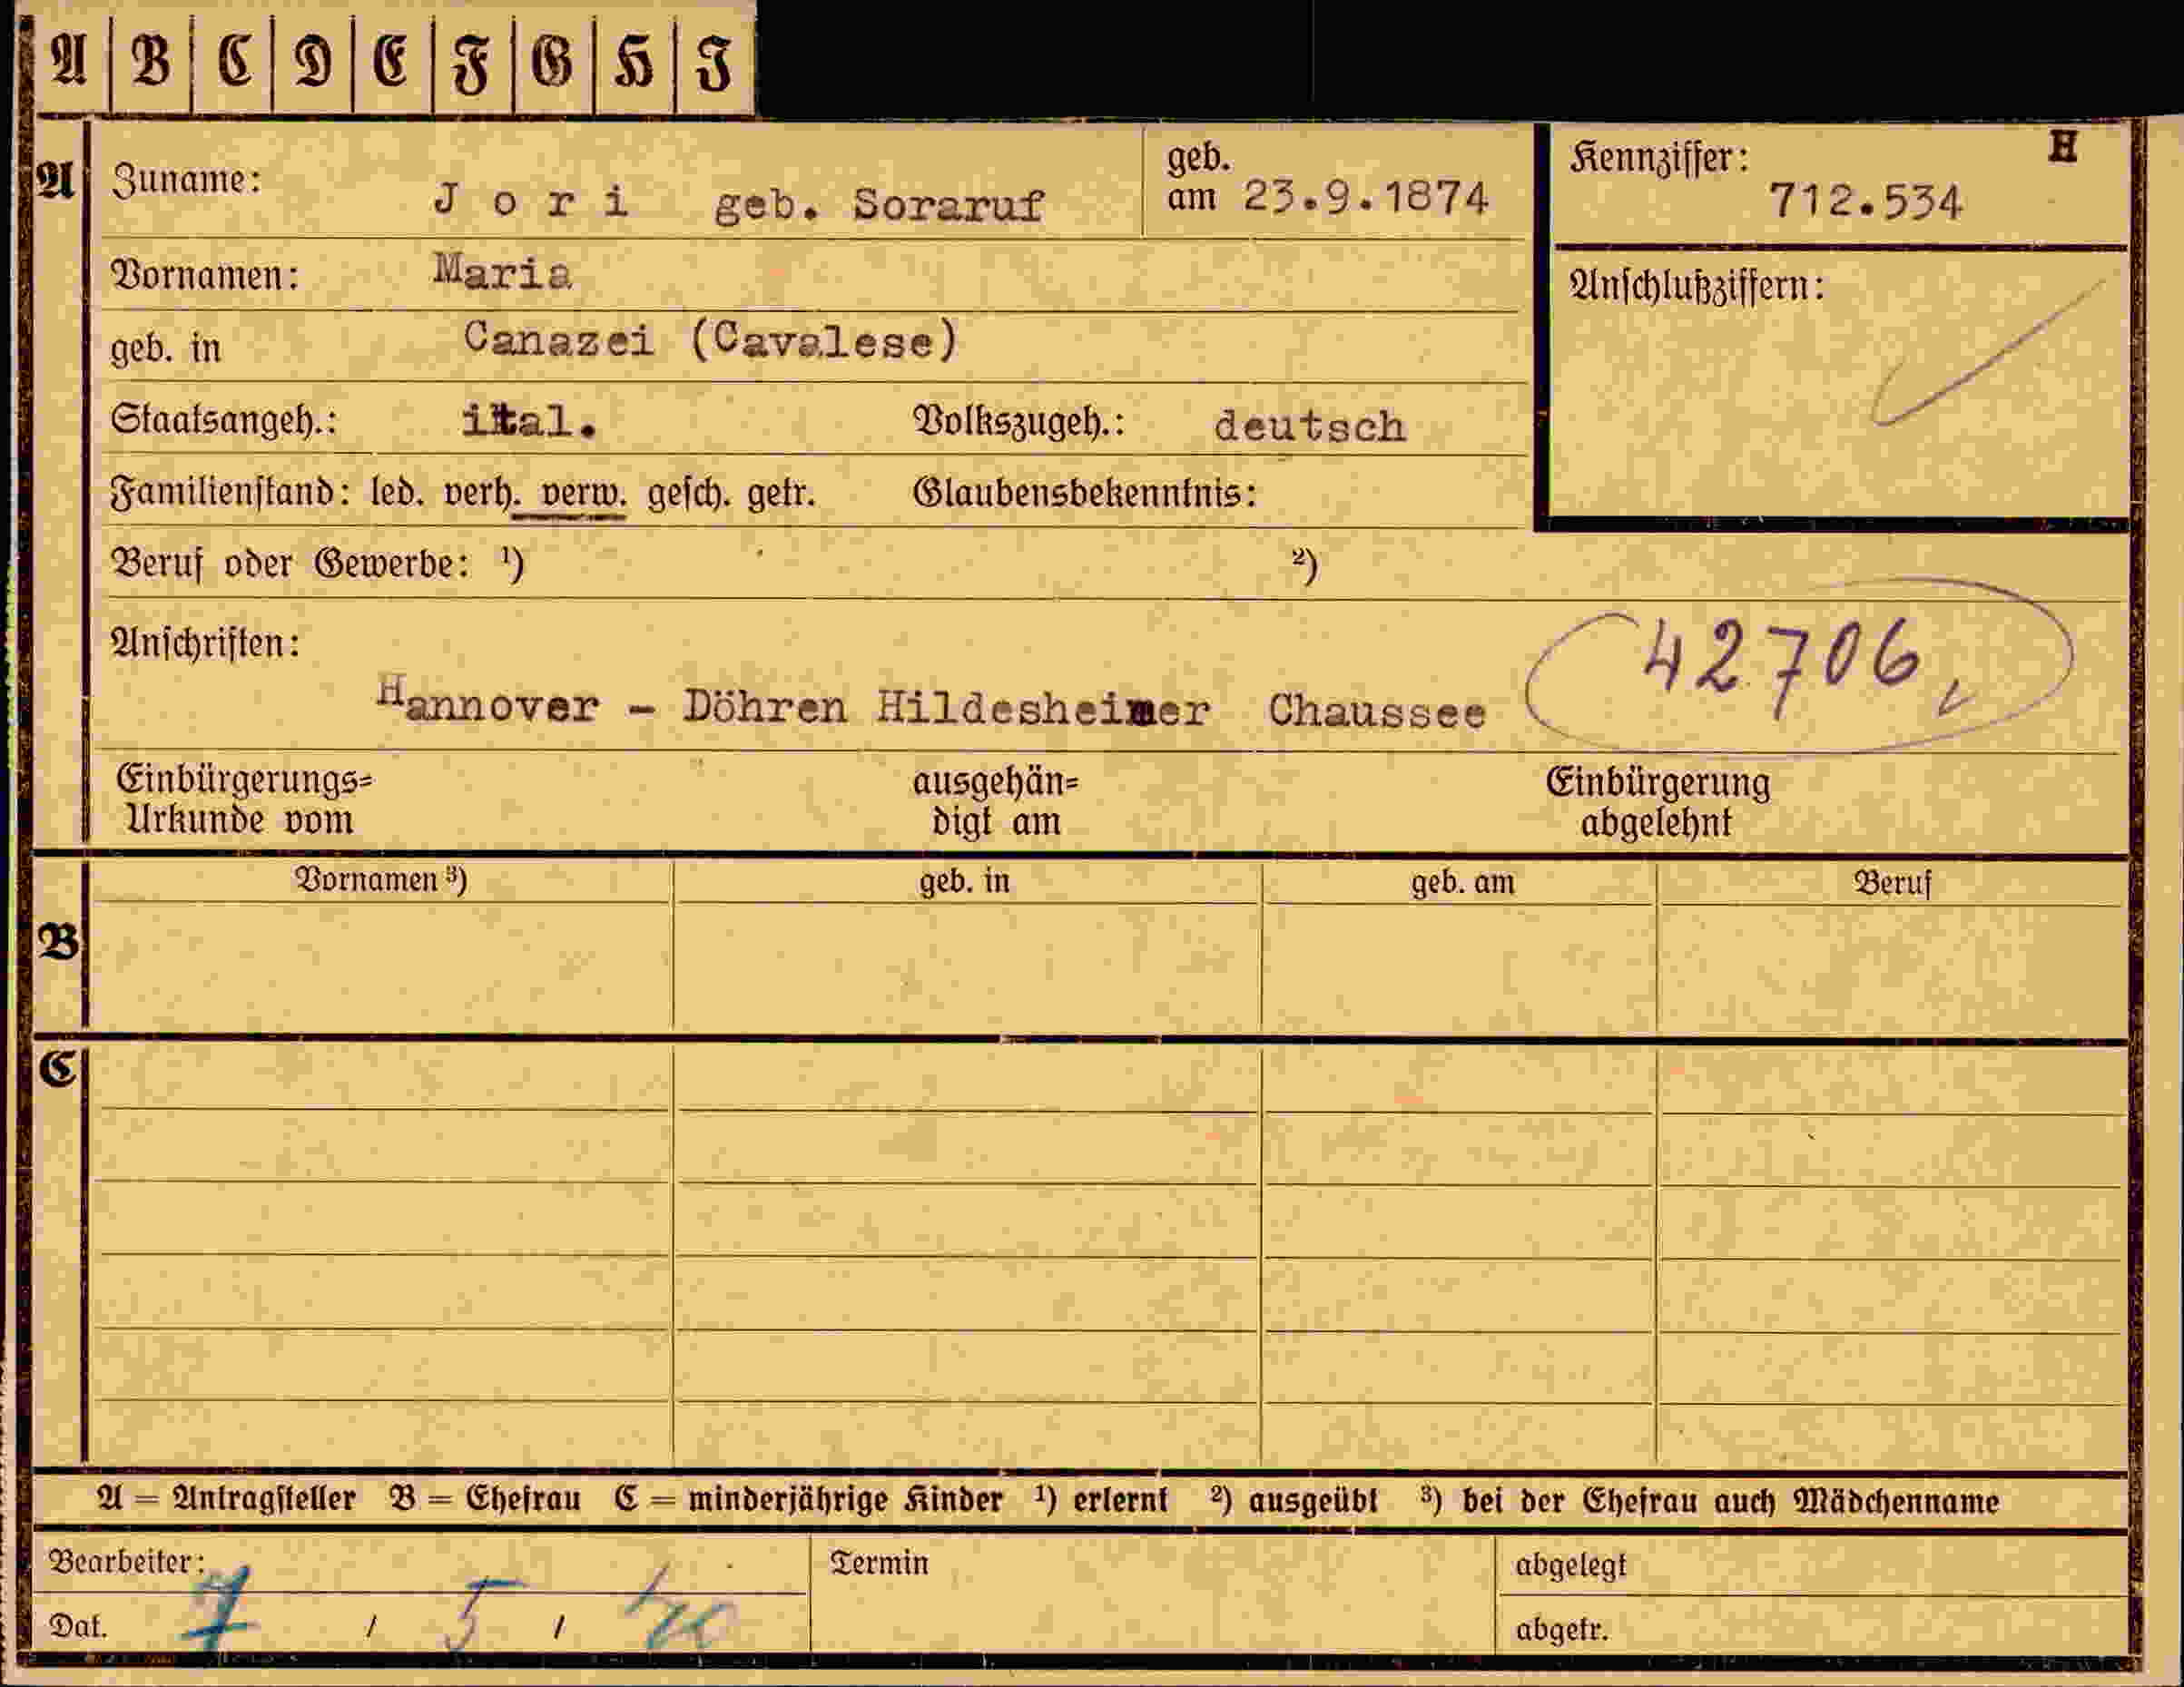 A B C D E F G H I
A Zuname: Jori geb. Soraruf geb. am 23.9.1874 Kennziffer: H 712.534
Vornamen: Maria Anschlußziffern:
geb. in Canazei (Cavalese)
Staatsangeh.: ital. Volkszugeh.: deutsch
Familienstand: led. verh. verw. gesch. getr. Glaubensbekenntnis:
Beruf oder Gewerbe: ¹) ²)
Anschriften: 42706
Hannover - Döhren Hildesheimer Chaussee
Einbürgerungs= ausgehän= Einbürgerung
Urkunde vom digt am abgelehnt
Vornamen ³) geb. in geb. am Beruf
B
C
A = Antragsteller B = Ehefrau C = minderjährige Kinder ¹) erlernt ²) ausgeübt ³) bei der Ehefrau auch Mädchenname
Bearbeiter: Termin abgelegt
Dat. 7 / 5 / 40 abgetr.